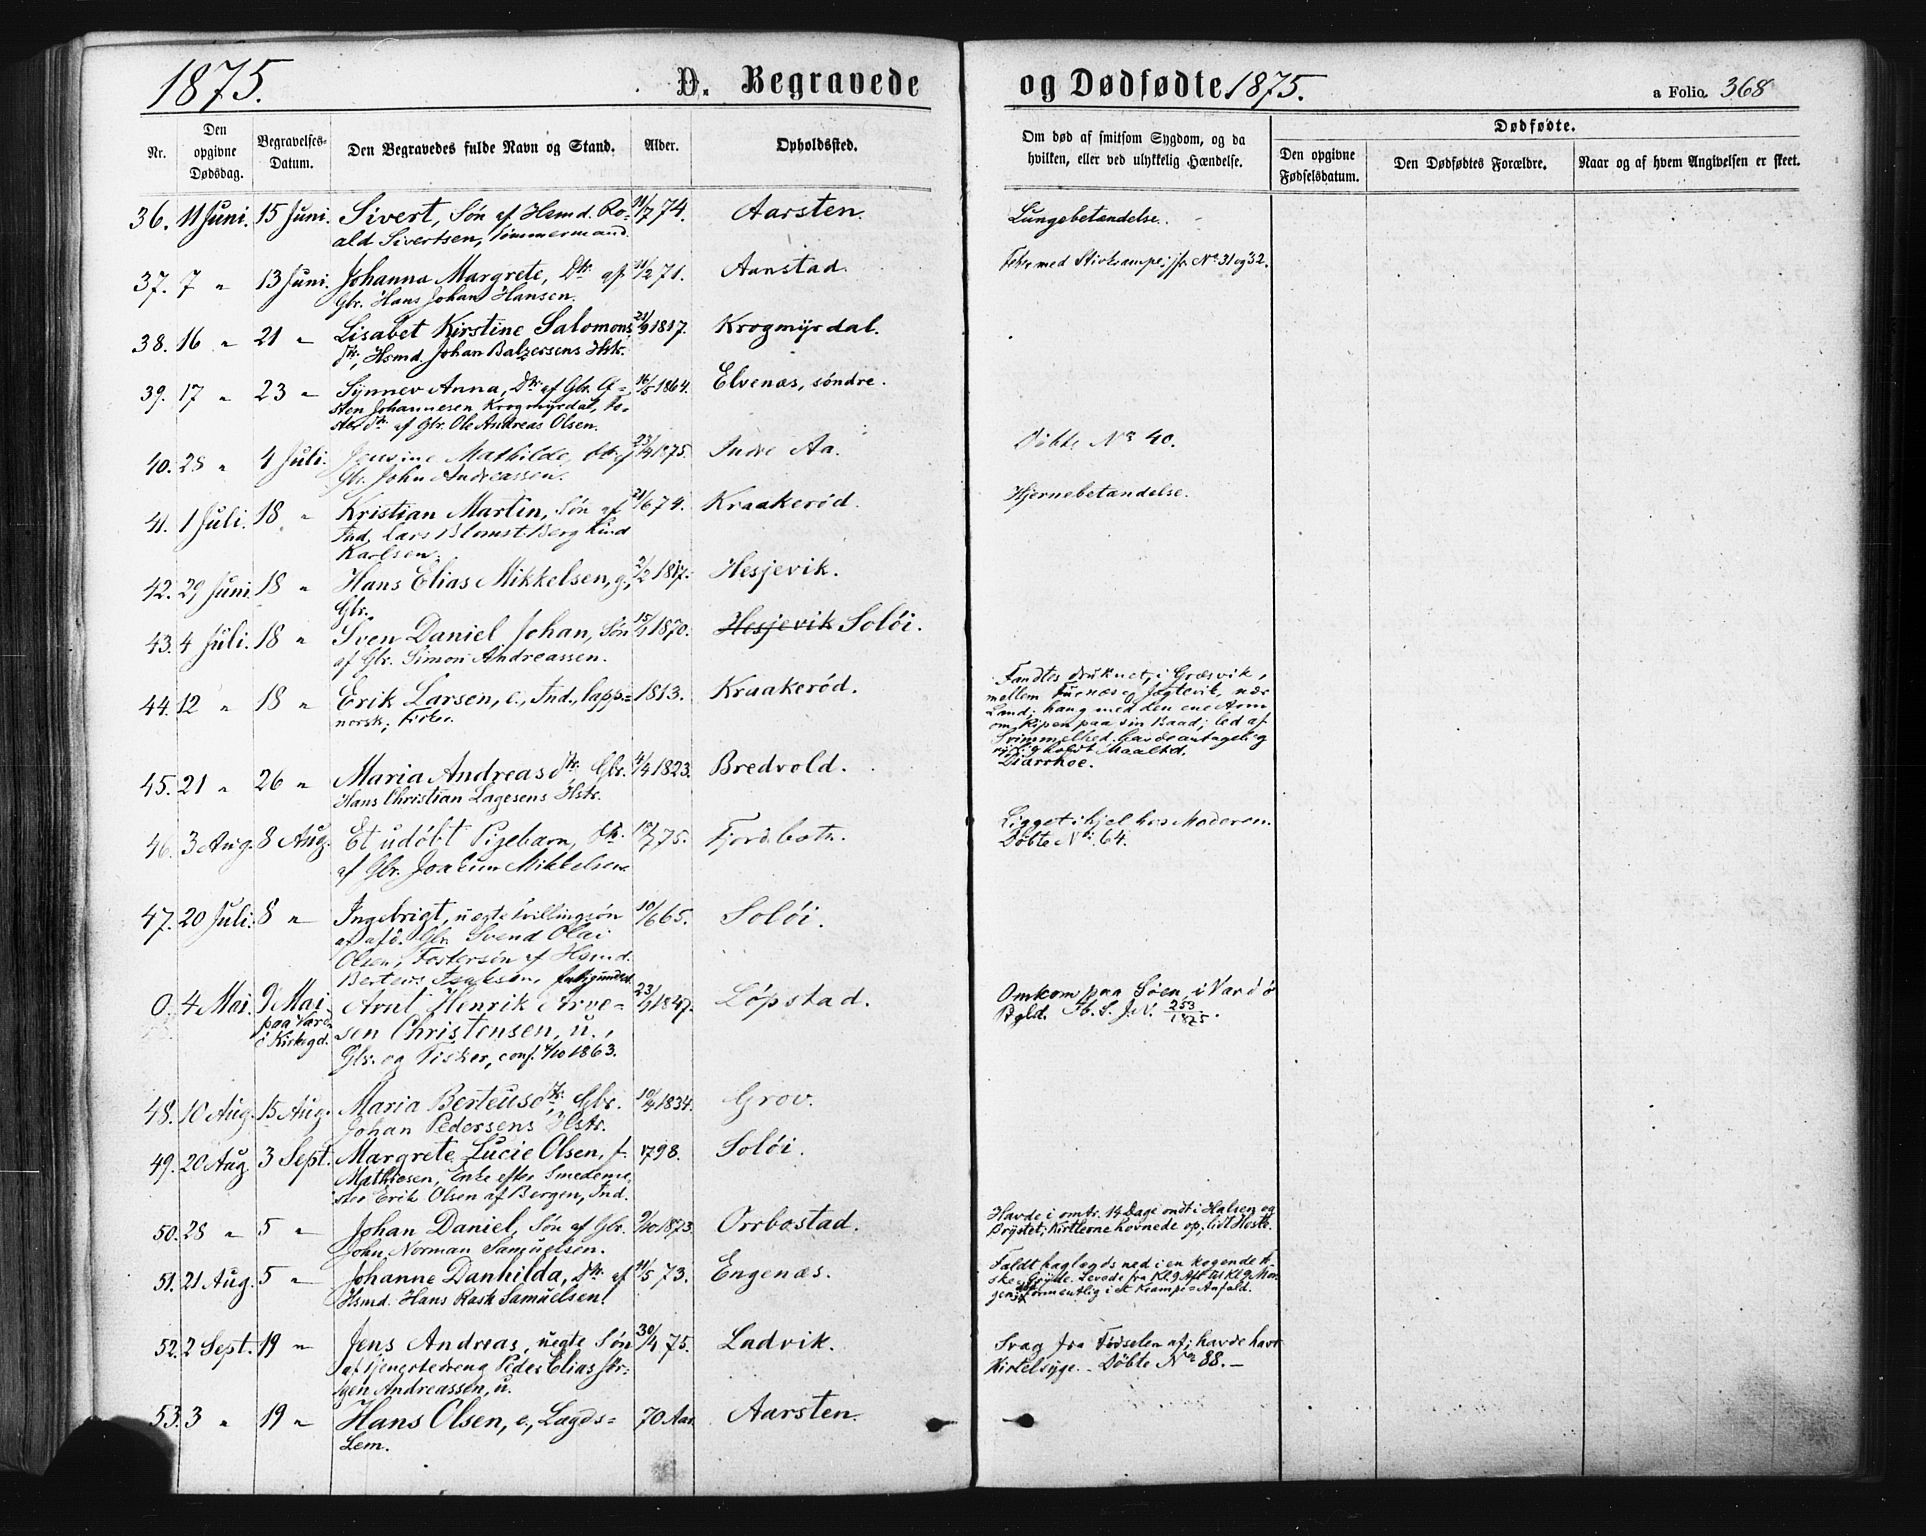 1875.
D. Begravede
og Dødfødte 1875.
a Folio 368
Nr.
Den opgivne Dødsdag.
Begravelses-Datum.
Den Begravedes fulde Navn og Stand.
Alder.
Opholdssted.
Om død af smitsom Sygdom, og da hvilken, eller ved ulykkelig Hændelse.
Dødfødte.
Den opgivne Fødselsdatum.
Den Dødfødtes Forældre.
Naar og af hvem Angivelsen er skeet.
36. 11 Juni. 15 Juni. Sivert, Søn af Hsmd. Ro- 11/7 74. Aarsten. Lungebetændelse.
ald Sivertsen, Tømmermand.
37. 7 " 13 Juni. Johanna Margrete, Dtr. af 11/2 71. Aanstad. med Stivkrampe, jfr. No. 31 og 32.
Gbr. Hans Johan Hansen.
38. 16 " 21 " Lisabet Kirstine Salomons 21/9 1817. Krogmyrdal.
dtr., Hsmd. Johan Balzersens Hstr.
39. 17 " 23 " Synnev Anna, Dtr. af Gbr. 16/5 1864. Elvenæs, søndre.
sten Johannesen Krogmyrdal, Fo-
ster Dtr. af Gbr. Ole Andreas Olsen.
40. 28 " 4 Juli. Jensine Mathilde, Dtr. af 23/4 1875. Indre Aa. Døbte No. 40.
Gbr. John Andreassen.
41. 1 Juli. 18 " Kristian Martin, Søn af 21/6 74. Kraakerød. Hjernebetændelse.
Ind. Lars Blomst-Berg Lind
Karlsen.
42. 29 Juni. 18 " Hans Elias Mikkelsen, g., 2/2 1817. Hesjevik.
Gbr.
43. 4 Juli. 18 " Sven Daniel Johan, Søn 15/1 1870. Hesjevik Soløi.
af Gbr. Simon Andreassen.
44. 12 " 18 " Erik Larsen, e., Ind., lapp- 1813. Kraakerød. Fandtes druknet, i Græsvik,
norsk; Fisker.
mellem Furnæs og Jægtevik, nær
Land; hang med den ene Arm
om Ripen paa sin Baad; led af
Svimmelhed. Havde antagelig
holdt Maaltid.
Diarrhoe.
45. 21 " 26 " Maria Andreasdtr. Gbr. 4/4 1823. Bredvold.
Hans Christian Lagesens Hstr.
46. 3 Aug. 8 Aug. Et udøbt Pigebarn, Dtr. 19/7 75. Fjordbotn. Ligget ihjel hos Moderen.
af Gbr. Joakim Mikkelsen.
Døbte No. 64.
47. 20 Juli. 8 " Ingebrigt, uægte Tvillingsøn 10/6 65. Soløi.
af afd. Gbr. Svend Olai
Olsen; Fostersøn af Hsmd.
Berteus Isaksen,
0. 4 Mai. 9 Mai Arnt Henrik Arve- 23/1 1847. Løpstad. Omkom paa Søen, i Vardø
paa Vard-
ø Kirkegd.
sen Christensen, u.,
Pgld. Kb. S. J. N. 253/1875.
Gbr. og Fisker, conf. 4/10 1863.
48. 10 Aug. 15 Aug. Maria Berteusdtr., Gbr. 10/4 1834. Grov.
Johan Pedersens Hstr.
49. 20 Aug. 3 Sept. Margrete Lucie Olsen, f. 1798. Soløi.
Mathiesen, Enke efter Smedeme-
ster Erik Olsen af Bergen, Ind.
50. 28 " 5 " Johan Daniel, Søn af Gbr. 9/10 1873. Orrbostad. Havde i omtr. 14 Dage ondt i Halsen og
John Norman Samuelsen.
Brystet; Kirtlerne hovnede op; lidt Hoste.
51. 21 Aug. 5 " Johanne Danhilda, Dtr. af 11/5 73. Engenæs. Faldt baglængs ned i en kogende Fi-
Hsmd. Hans Rask Samuelsen.
ske-Gryde. Levede fra Kl. 9 Aft. til Kl. 9 Mor-
gen, formentlig i et Krampe-Anfald.
52. 2 Sept. 19 " Jens Andreas, uægte Søn 30/4 75. Ladvik. Svag fra Fødselen af; havde havt
af Tjenestedreng Peder Elias Jør-
Kirtelsyge. Døbte No. 88.
gen Andreassen, u.
53. 3 " 19 " Hans Olsen, e., Lægds- 70 Aar. Aarsten.
Lem.